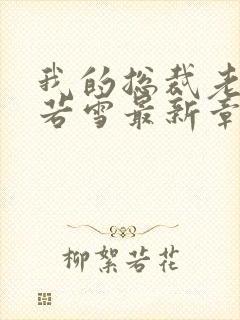 我的总裁老
若雪最新章
柳絮若花